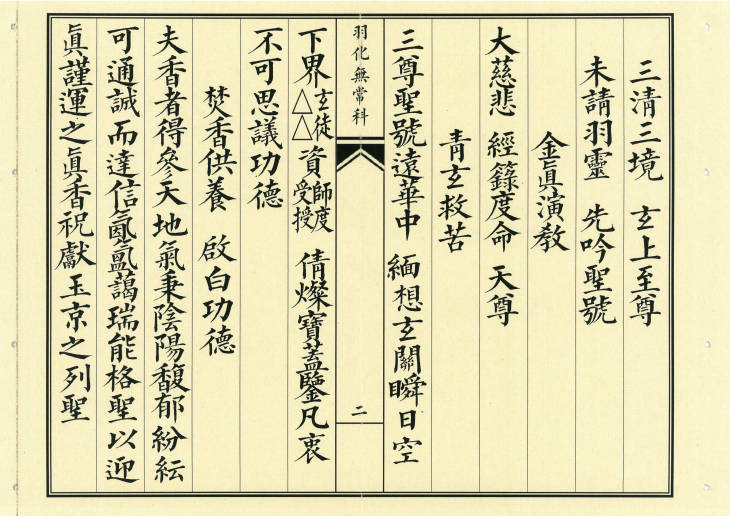 三清三境 玄上至尊
未請羽靈 先吟聖號
金眞演教
大慈悲 經籙度命 天尊
青玄救苦
三尊聖號遠華中 緬想玄關瞬日空
羽化無常科
二
下界玄徒△△資師度受授 倩燦寶蓋鑒凡衷
不可思議功德
焚香供養 啟白功德
夫香者得參天地氣秉陰陽馥郁紛紜
可通誠而達信氤氳藹瑞能格聖以迎
眞謹運之眞香祝獻玉京之列聖